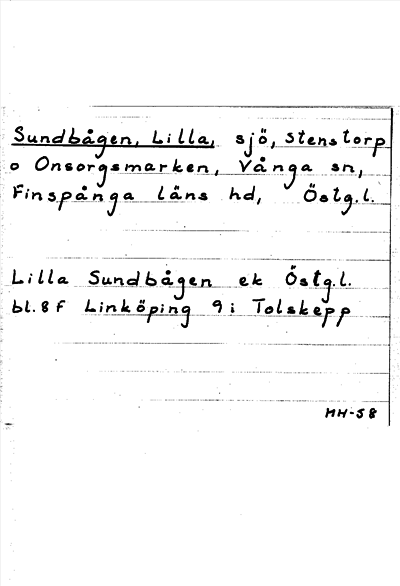 Sundbågen, Lilla, sjö, Stenstorp
o Onsorgsmarken, Vånga sn,
Finspånga läns hd, Östg.l.
Lilla Sundbågen ek Östg.l.
bl. 8 F Linköping 9 i Tolskepp
MH-58